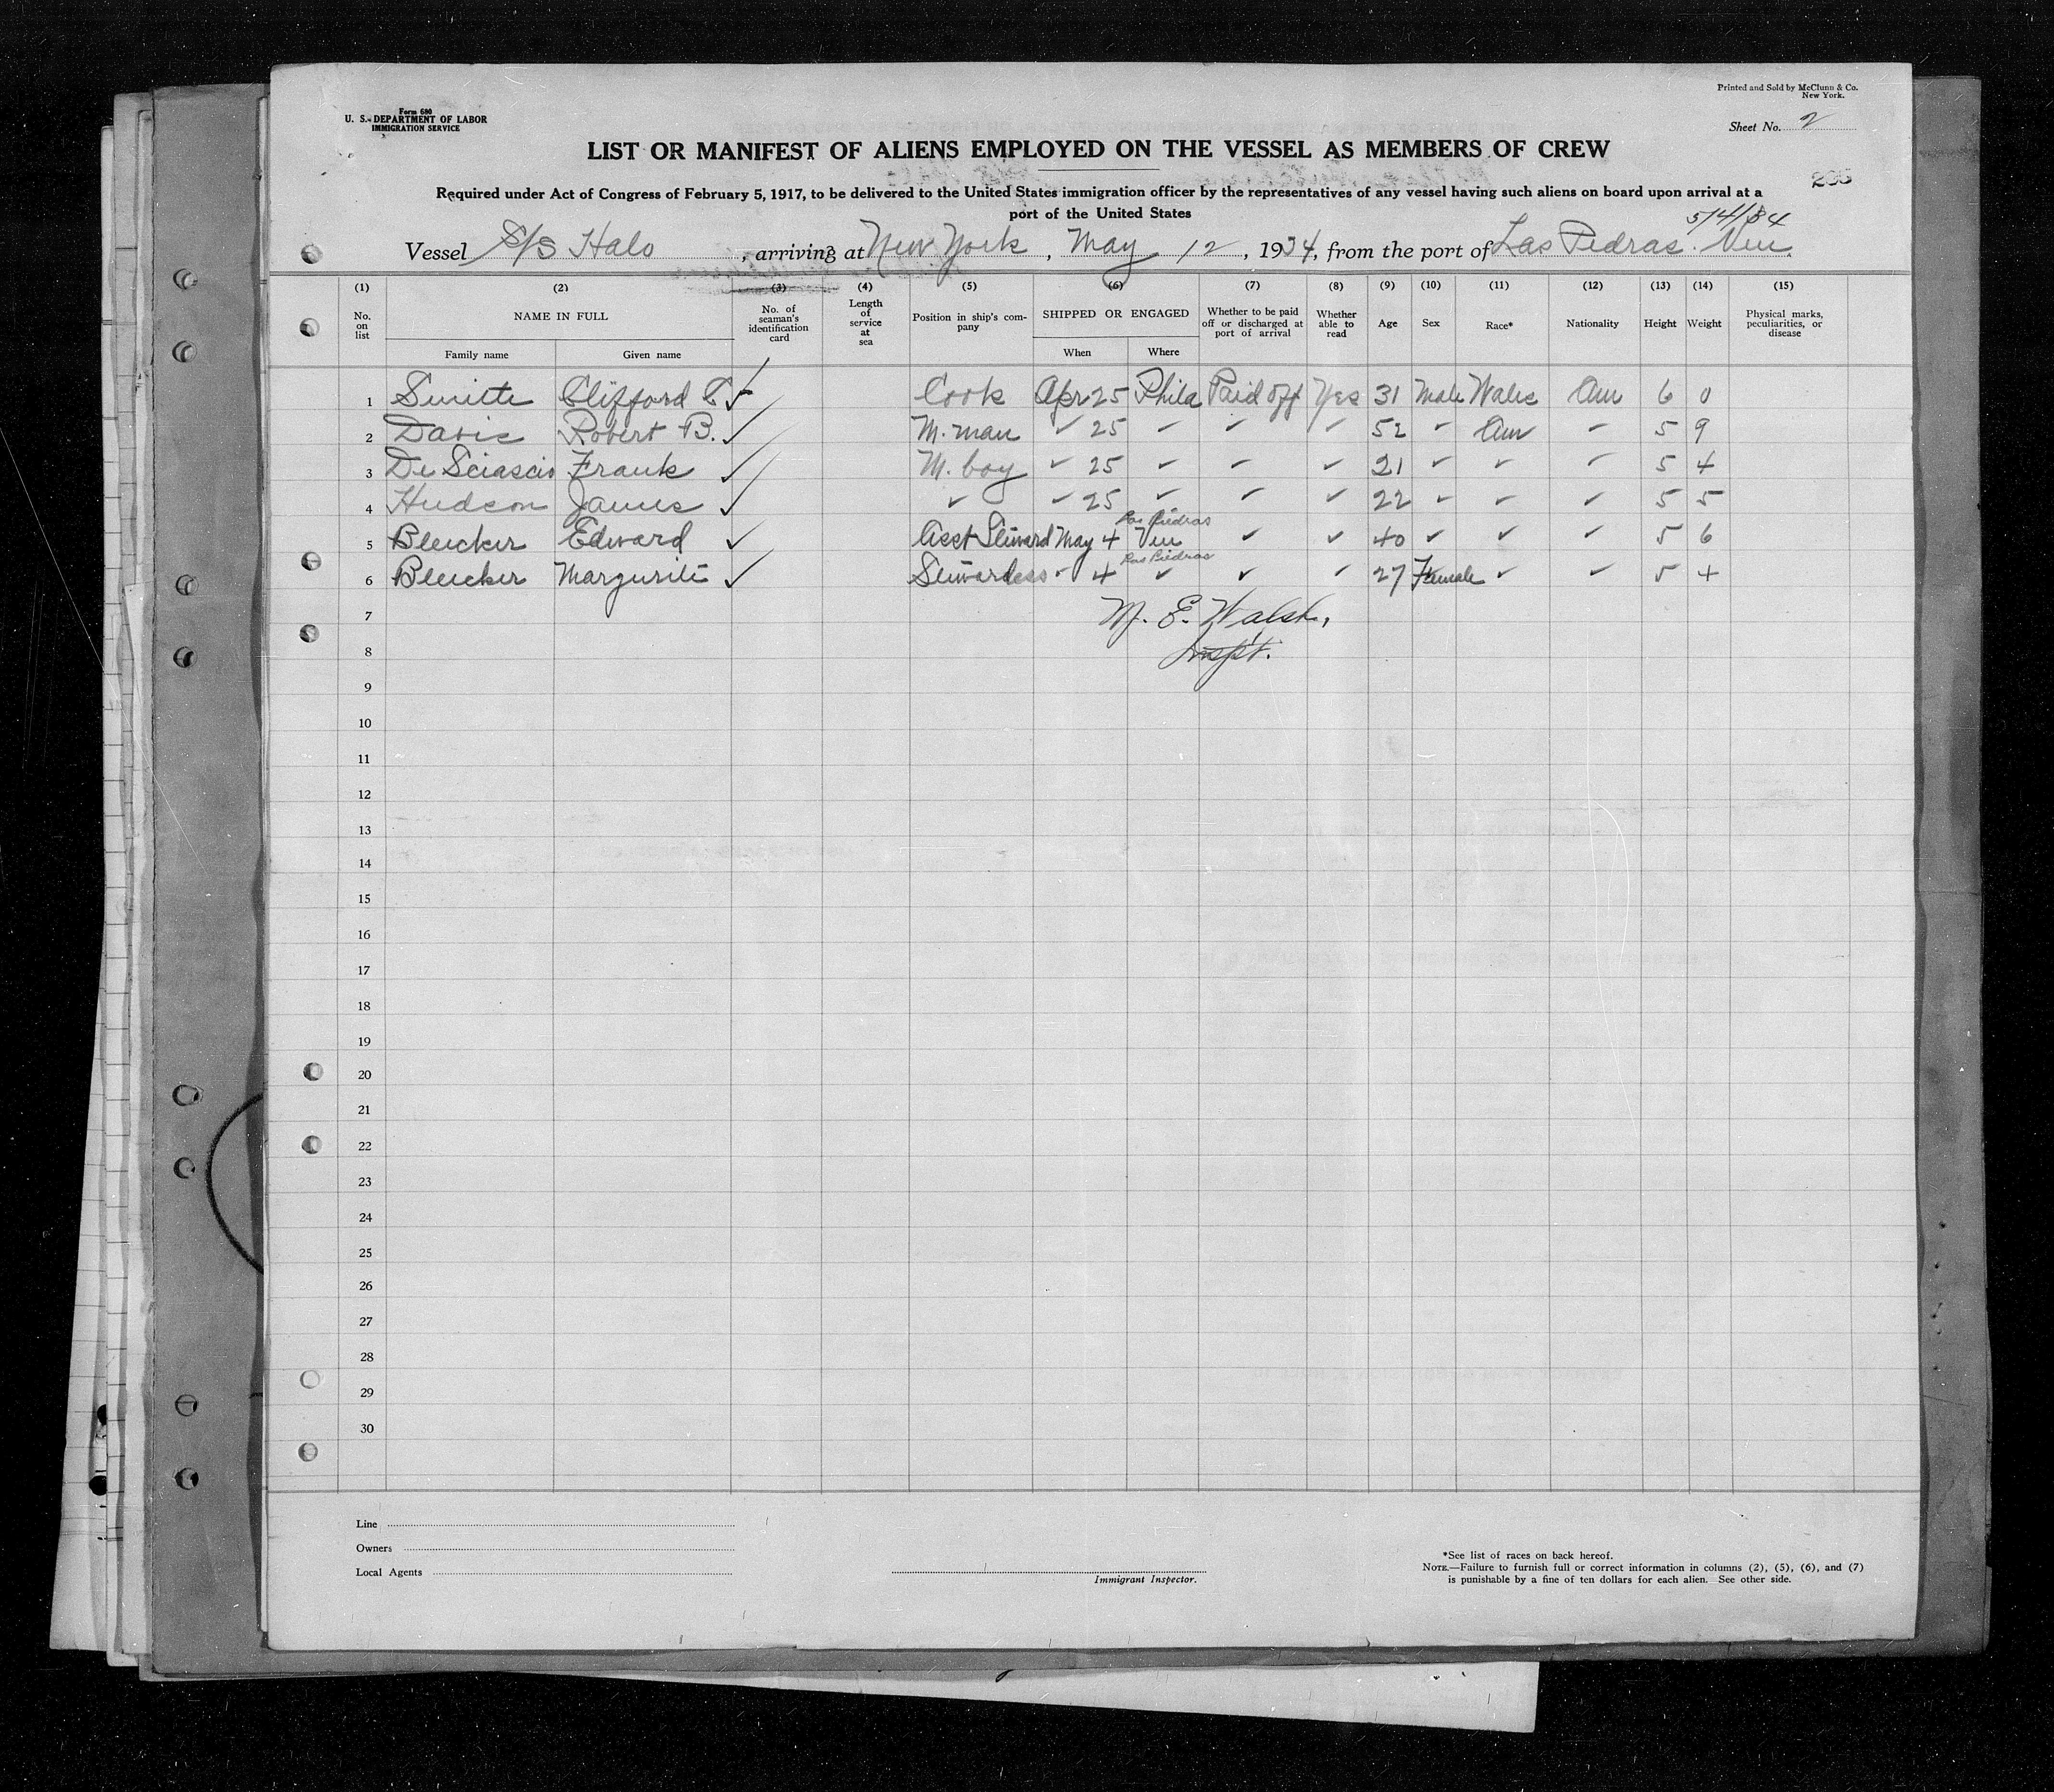 Form 680
U. S. DEPARTMENT OF LABOR
IMMIGRATION SERVICE
Printed and Sold by McClunn & Co.
New York.
Sheet No. 2
LIST OR MANIFEST OF ALIENS EMPLOYED ON THE VESSEL AS MEMBERS OF CREW
Required under Act of Congress of February 5, 1917, to be delivered to the United States immigration officer by the representatives of any vessel having such aliens on board upon arrival at a
port of the United States
5/4/34
Vessel S/S Halo, arriving at New York, May 12, 1934, from the port of Las Pedras. Ven.
(1) (2) (3) (4) (5) (6) (7) (8) (9) (10) (11) (12) (13) (14) (15)
No. on list NAME IN FULL No. of seaman's identification card Length of service at sea Position in ship's company SHIPPED OR ENGAGED Whether to be paid off or discharged at port of arrival Whether able to read Age Sex Race* Nationality Height Weight Physical marks, peculiarities, or disease
Family name Given name When Where
1 Smith Clifford ✓ Cook Apr 25 Phila Paid Off Yes 31 Male Wales Am 6 0
2 Davis Robert B. ✓ M. man ✓ 25 ✓ ✓ ✓ 52 ✓ Am ✓ 5 9
3 De Sciascio Frank ✓ M. boy ✓ 25 ✓ ✓ ✓ 21 ✓ ✓ ✓ 5 4
4 Hudson James ✓ ✓ ✓ 25 ✓ ✓ ✓ 22 ✓ ✓ ✓ 5 5
Las Piedras
5 Bleecker Edward ✓ Asst Steward May 4 Ven ✓ ✓ 40 ✓ ✓ ✓ 5 6
Las Piedras
6 Bleecker Margurite ✓ Stewardess ✓ 4 ✓ ✓ ✓ 27 Female ✓ ✓ 5 4
7 M. E. Walsh,
8 Inspt.
9
10
11
12
13
14
15
16
17
18
19
20
21
22
23
24
25
26
27
28
29
30
Line
Owners
Local Agents
Immigrant Inspector.
*See list of races on back hereof.
NOTE.—Failure to furnish full or correct information in columns (2), (5), (6), and (7)
is punishable by a fine of ten dollars for each alien. See other side.